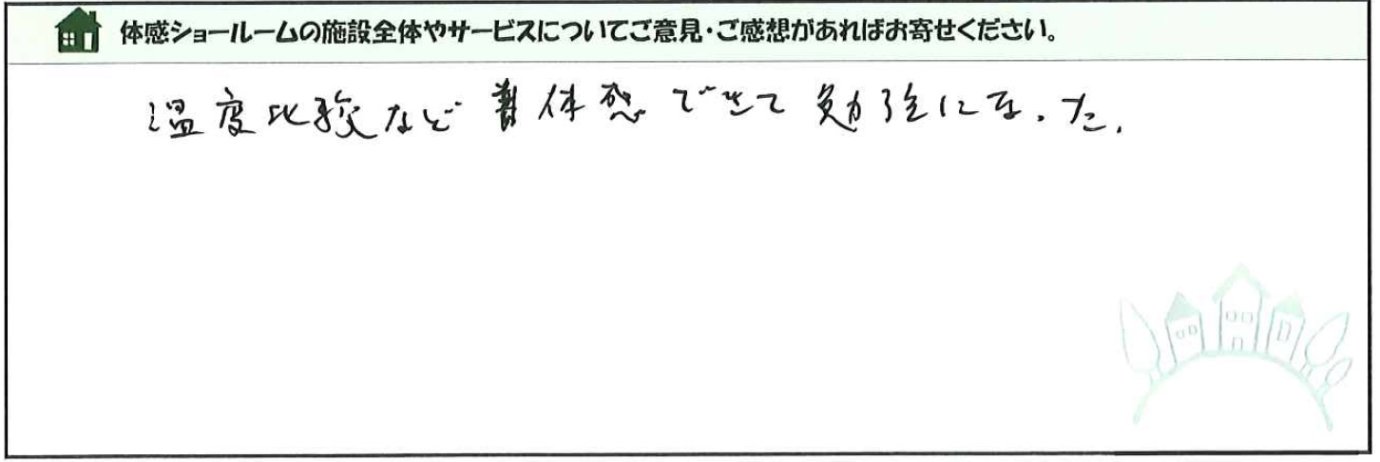 体感ショールームの施設全体やサービスについてご意見・ご感想があればお寄せください。
温度比較など 体感できて勉強になった.